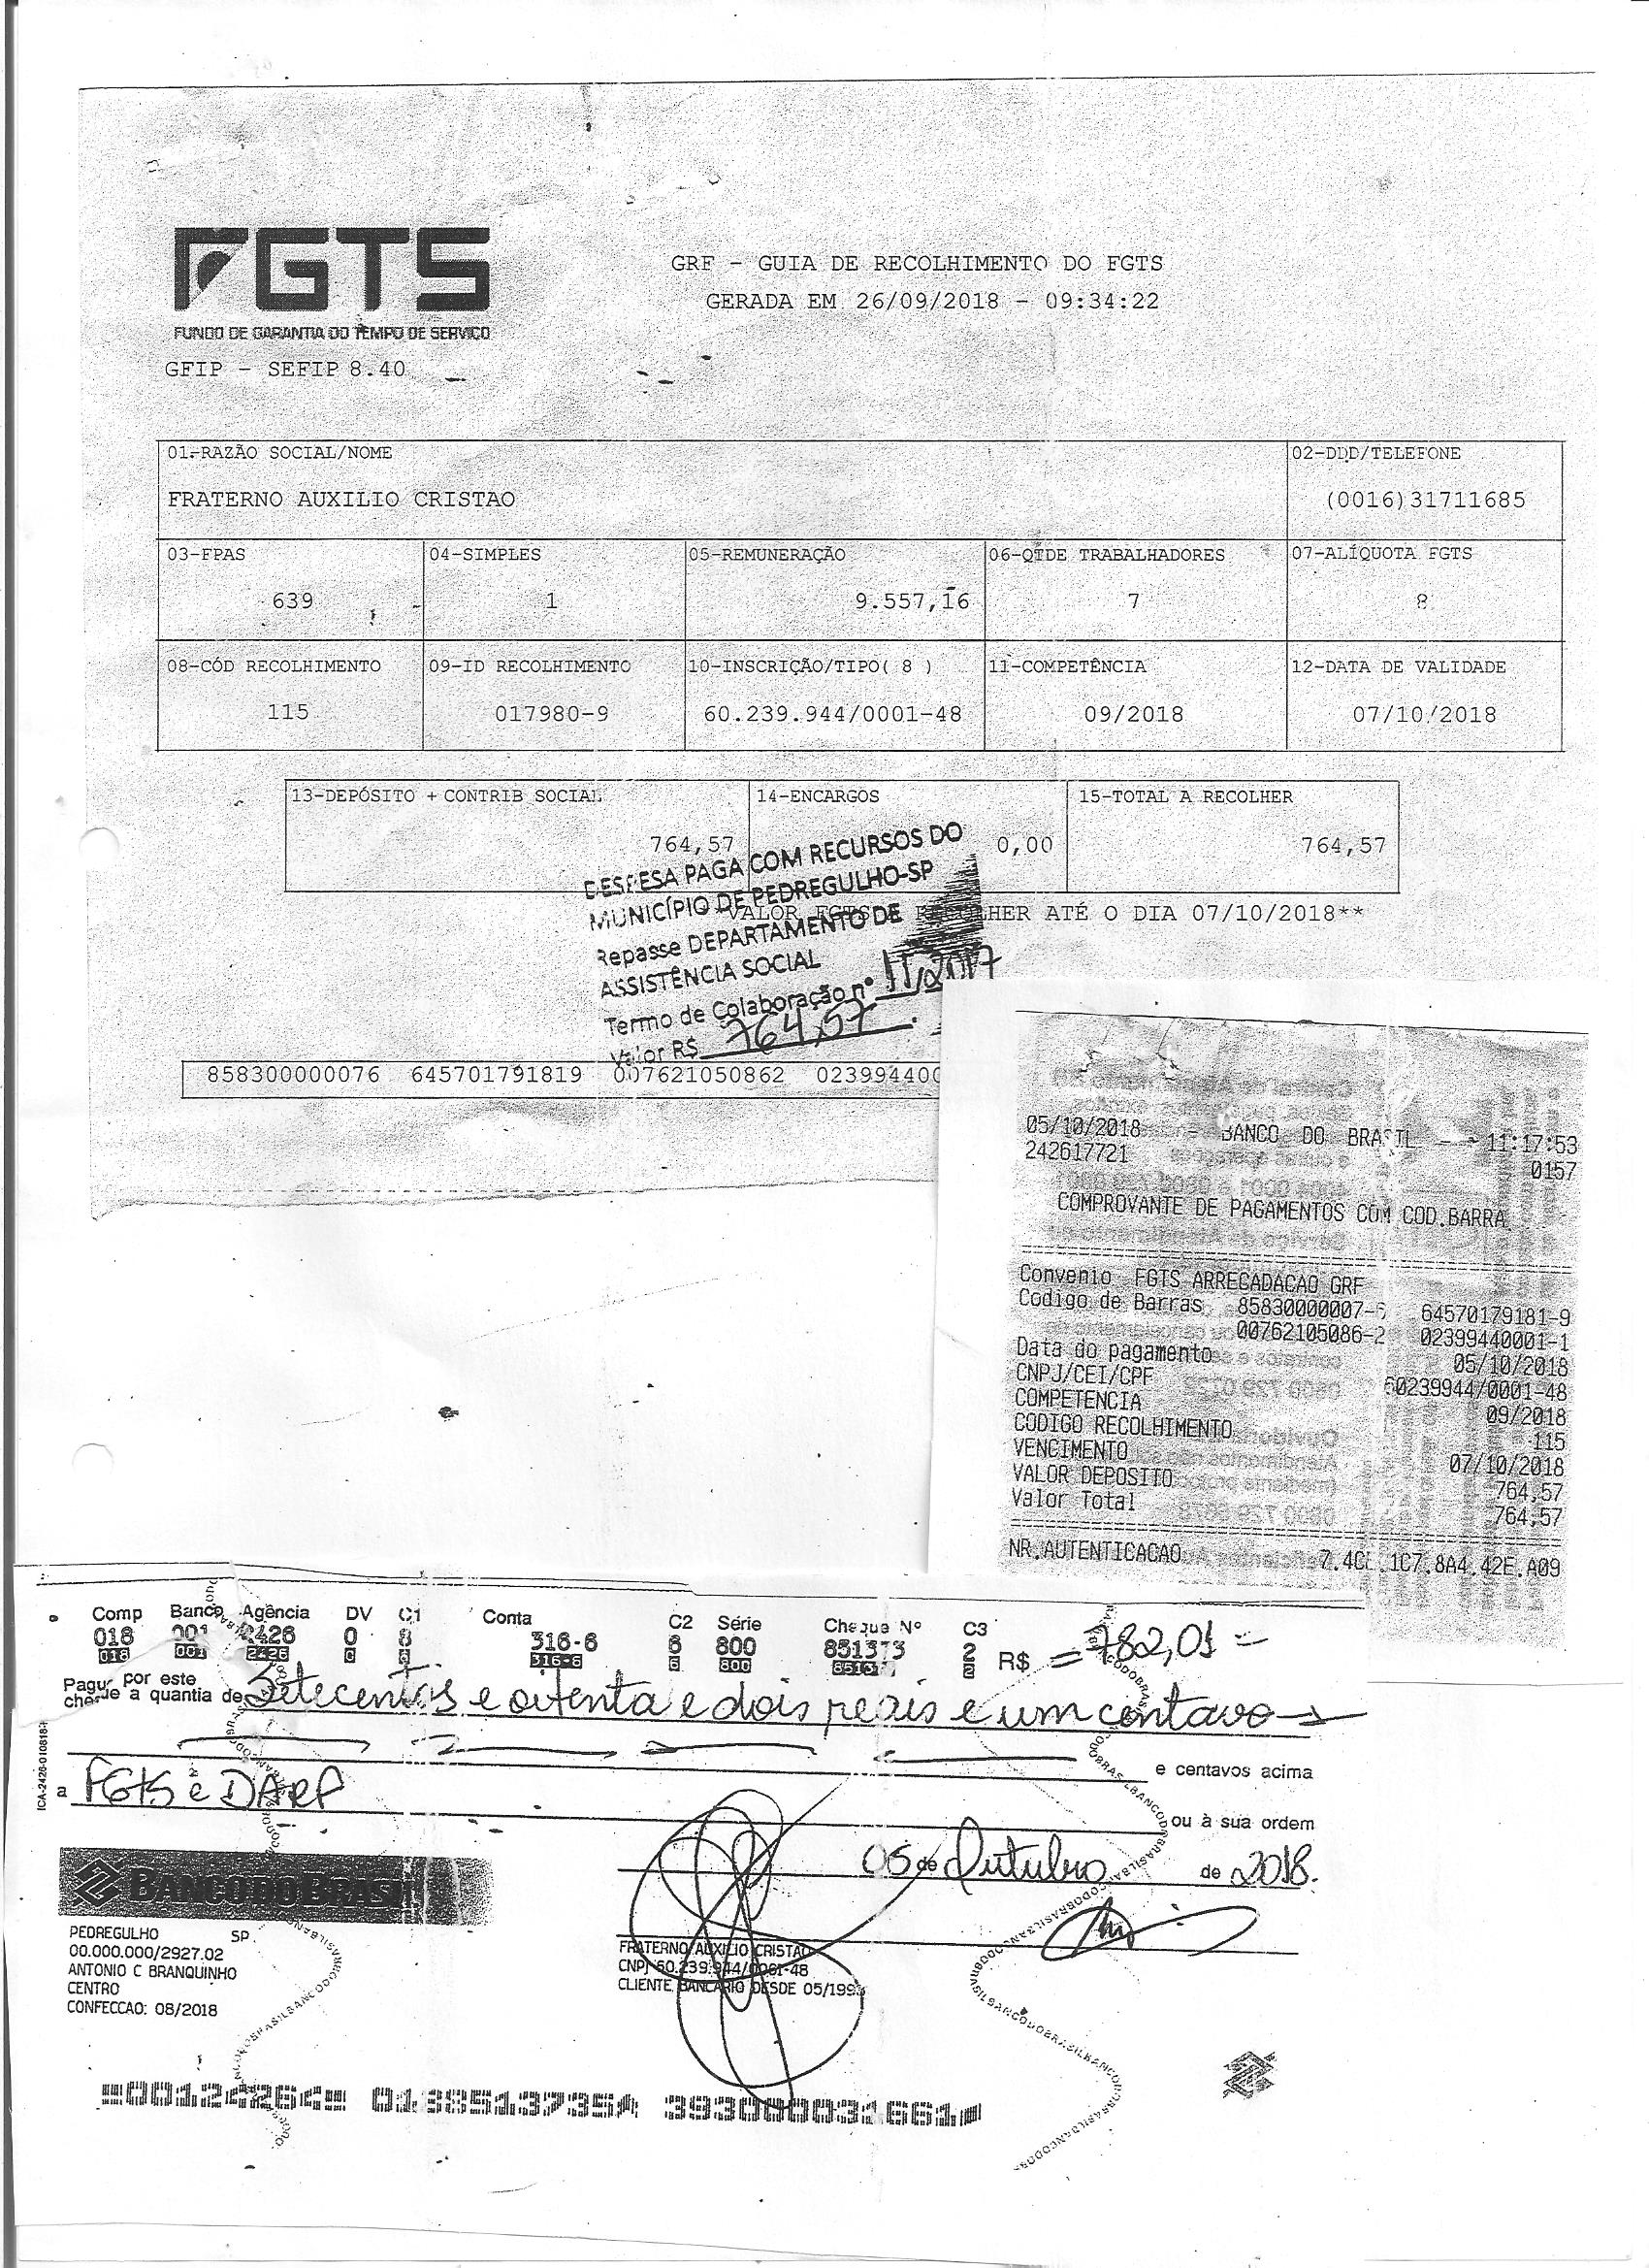 FGTS
FUNDO DE GARANTIA DO TEMPO DE SERVIÇO
GFIP - SEFIP 8.40
GRF - GUIA DE RECOLHIMENTO DO FGTS
GERADA EM 26/09/2018 - 09:34:22
01-RAZÃO SOCIAL/NOME
FRATERNO AUXILIO CRISTAO
02-DDD/TELEFONE
(0016)31711685
03-FPAS
639
04-SIMPLES
1
05-REMUNERAÇÃO
9.557,16
06-QTDE TRABALHADORES
7
07-ALÍQUOTA FGTS
8
08-CÓD RECOLHIMENTO
115
09-ID RECOLHIMENTO
017980-9
10-INSCRIÇÃO/TIPO( 8 )
60.239.944/0001-48
11-COMPETÊNCIA
09/2018
12-DATA DE VALIDADE
07/10/2018
13-DEPÓSITO + CONTRIB SOCIAL
764,57
14-ENCARGOS
0,00
15-TOTAL A RECOLHER
764,57
VALOR FGTS A RECOLHER ATÉ O DIA 07/10/2018**
DESPESA PAGA COM RECURSOS DO
MUNICÍPIO DE PEDREGULHO-SP
Repasse DEPARTAMENTO DE
ASSISTÊNCIA SOCIAL
Termo de Colaboração nº 11/2017
Valor R$ 764,57
858300000076 645701791819 007621050862 02399440
05/10/2018 - BANCO DO BRASIL - 11:17:53
242617721 0157
COMPROVANTE DE PAGAMENTOS COM COD.BARRA
Convenio FGTS ARRECADACAO GRF
Codigo de Barras 85830000007-6 64570179181-9
00762105086-2 02399440001-1
Data do pagamento 05/10/2018
CNPJ/CEI/CPF 60239944/0001-48
COMPETENCIA 09/2018
CODIGO RECOLHIMENTO 115
VENCIMENTO 07/10/2018
VALOR DEPOSITO 764,57
Valor Total 764,57
NR.AUTENTICACAO 7.4CE.1C7.8A4.42E.A09
Comp Banco Agência DV C1 Conta C2 Série Cheque Nº C3
018 001 2426 0 8 316-6 6 800 851373 2 R$ = 782,01 =
018 001 2426 0 8 316-6 6 800 2
Pague por este
cheque a quantia de Setecentos e oitenta e dois reais e um centavo
e centavos acima
a FGTS e DARF
ou à sua ordem
05 de Outubro de 2018.
BANCO DO BRASIL
PEDREGULHO SP
00.000.000/2927.02
ANTONIO C BRANQUINHO
CENTRO
CONFECCAO: 08/2018
FRATERNO AUXILIO CRISTAO
CNPJ 60.239.944/0001-48
CLIENTE BANCARIO DESDE 05/199